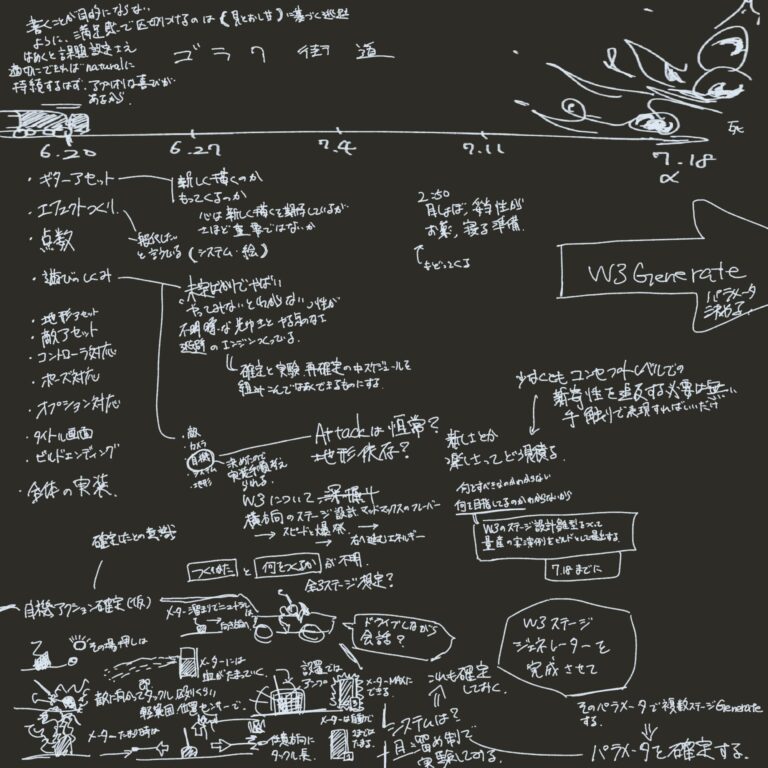 書くことが目的にならない
ように、満足感で区切りつけるのは(見とおし甘)に基づく逃避
はめくと課題設定さえ
適切にできればnaturalに
持続するはず。アプリオリな喜びが
あるから。
ゴラク街道
死
6.20
6.27
7.4
7.11
7.18
α
・ギターアセット
新しく描くのか
もってくるのか
心は新しく描くを期待しているが
さほど重要ではないか
・エフェクトつくり
・点数
(システム・絵)
・遊びのしくみ
未定ばかりでやばい
やってみないとわからない
不明瞭な
逃避のエンジンつくっている。
確定と実験、再確定の中スケジュールを
組みこんでなめてできるものにする。
2:50
お薬、寝る準備。
もどってくる
W3 Generate
パラメータ
決める
・地形アセット
・敵アセット
・コントローラ対応
・ポーズ対応
・オプション対応
・タイトル画面
・ビルドエンディング
・全体の実装
・敵
・カメラ
・自機
・システム
・地形
決めたので
Attackは恒常?
地形依存?
少なくともコンセプトレベルでの
新奇性を追及する必要は無い
手触りで表現すればいいだけ
新しさとか
楽しさってどう見積る
何をすべきなのかわからない
何を目指してるのかわからないから
W3について
横方向のステージ設計 マッドマックスのフレーバー
→スピードと爆発
→右へ進むエネルギー
W3のステージ設計雛型をつくって
量産の実演例をビルドとして提出する
7.18までに
確定したとの意識
つくりかたと何をつくるかが不明
全3ステージ想定?
自機アクション確定(仮)
メーター溜まりてニュートラルは
ドライブしながら
会話?
その場押しは
メーターには
血がたまっていく。
敵に向かってタックル
設置では
アンプ
メーターMAXに
できる。
メーターたまり時は
仕様方向に
タックル長。
メーターは自動で
たまる。
これも確定
しておく。
システムは?
目留め制で
実験してみる。
W3ステージ
ジェネレーターを
完成させて
そのパラメータで複数ステージGenerate
する。
パラメータを確定する。